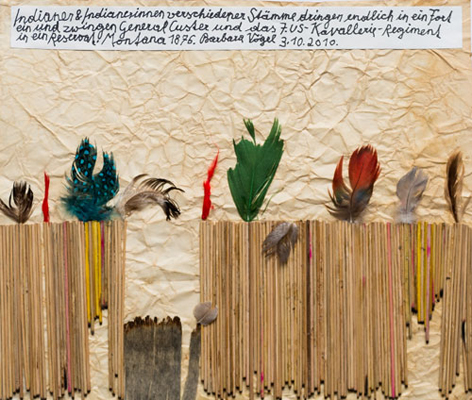 Indianer & Indianerinnen verschiedener Stämme dringen endlich in ein Fort
ein und zwingen General Custer und das 7. US-Kavallerie-Regiment
in ein Reservat! Montana 1876. Barbara Vögel 3.10.2010.